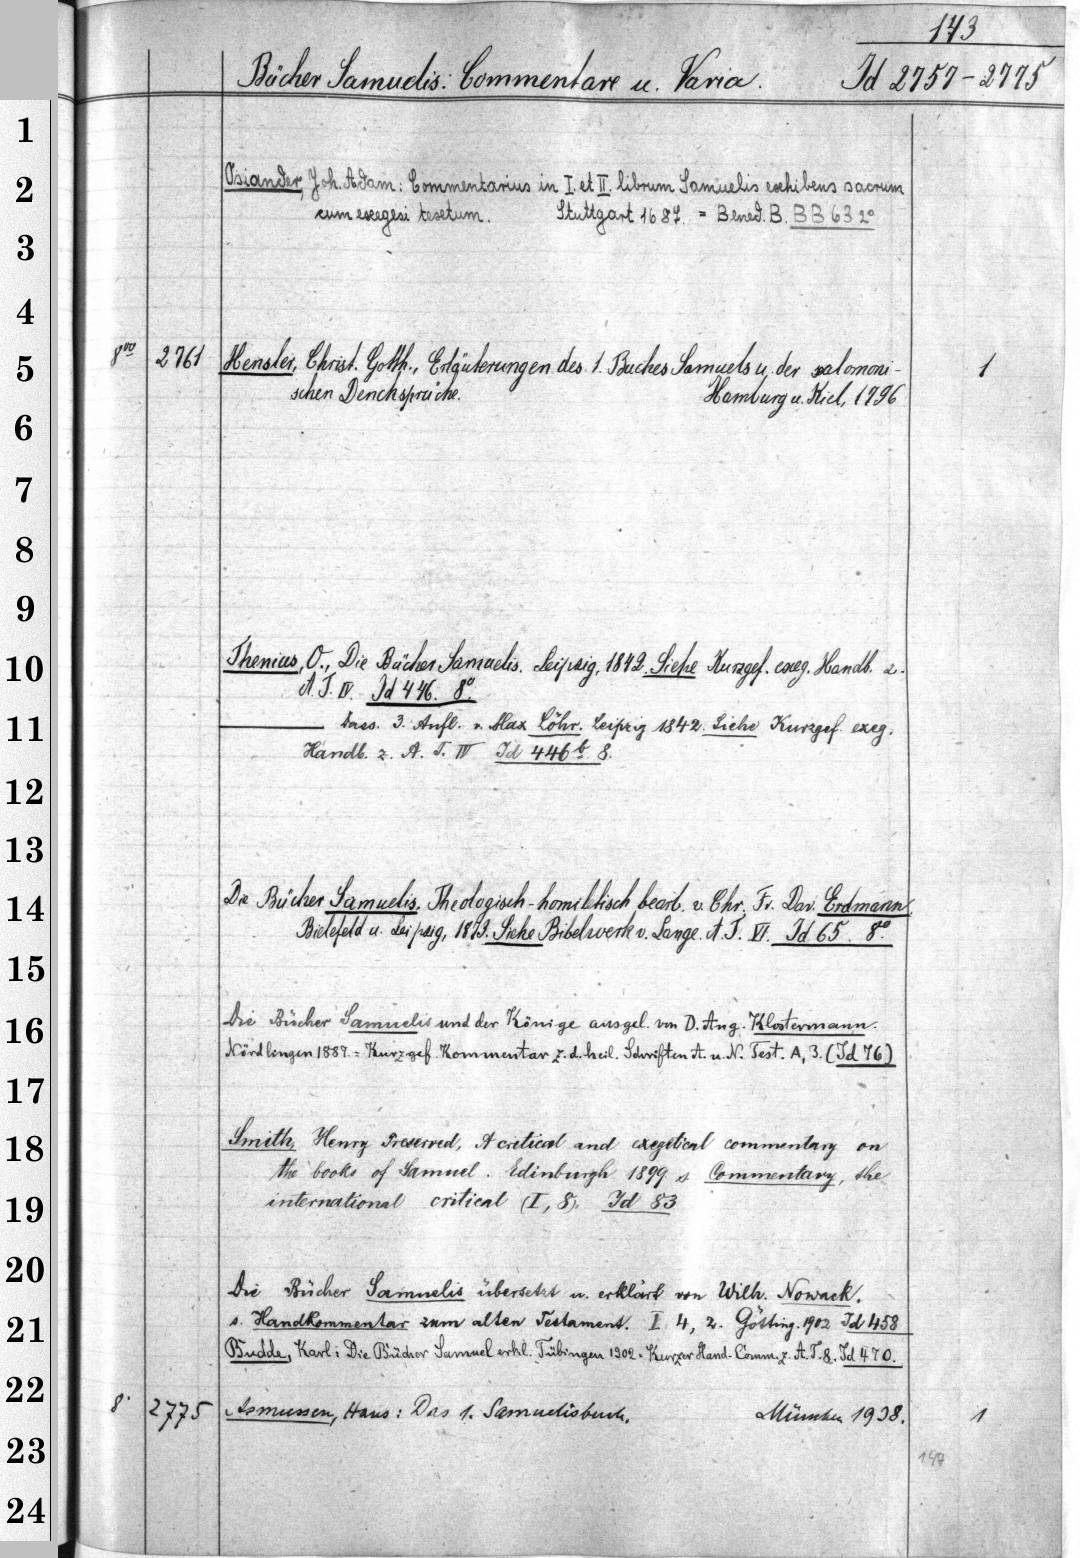 143
Bücher Samuelis: Commentare u. Varia. Id 2757-2775
1
2 Osiander, Joh. Adam: Commentarius in I. et II. librum Samuelis exhibens sacrum
cum exegesi textum. Stuttgart 1687. = Bened. B. BB 63 2°
3
4
5 8vo 2761 Hensler, Christ. Gotth., Erläuterungen des 1. Buches Samuels u. der salomoni-
schen Denksprüche. Hamburg u. Kiel, 1796 1
6
7
8
9
10 Thenius, O., Die Bücher Samuelis. Leipzig, 1842. Siehe Kurzgef. exeg. Handb. z.
A. T. IV. Id 446. 8°.
11 dass. 3. Aufl. v. Max Löhr. Leipzig 1842. Siehe Kurzgef. exeg.
Handb. z. A. T. IV Id 446 b. 8.
12
13
14 Die Bücher Samuelis. Theologisch-homiletisch bearb. v. Chr. Fr. Dav. Erdmann.
Bielefeld u. Leipzig, 1873. Siehe Bibelwerk v. Lange. A. T. VI. Id 65. 8°
15
16 Die Bücher Samuelis und der Könige ausgel. von D. Aug. Klostermann.
Nördlingen 1887. = Kurzgef. Kommentar z. d. heil. Schriften A. u. N. Test. A, 3. (Id 76)
17
18 Smith, Henry Preserved, A critical and exegetical commentary on
the books of Samuel. Edinburgh 1899 s Commentary, the
19 international critical (I, 8). Id 83
20
Die Bücher Samuelis übersetzt u. erklärt von Wilh. Nowack.
21 s. Handkommentar zum alten Testament. I 4, 2. Götting. 1902 Id 458
Budde, Karl: Die Bücher Samuel erkl. Tübingen 1902. = Kurzer Hand-Comm. z. A. T. 8. Id 470.
22 8° 2775 Asmussen, Hans: Das 1. Samuelisbuch. München 1938. 1
23
24